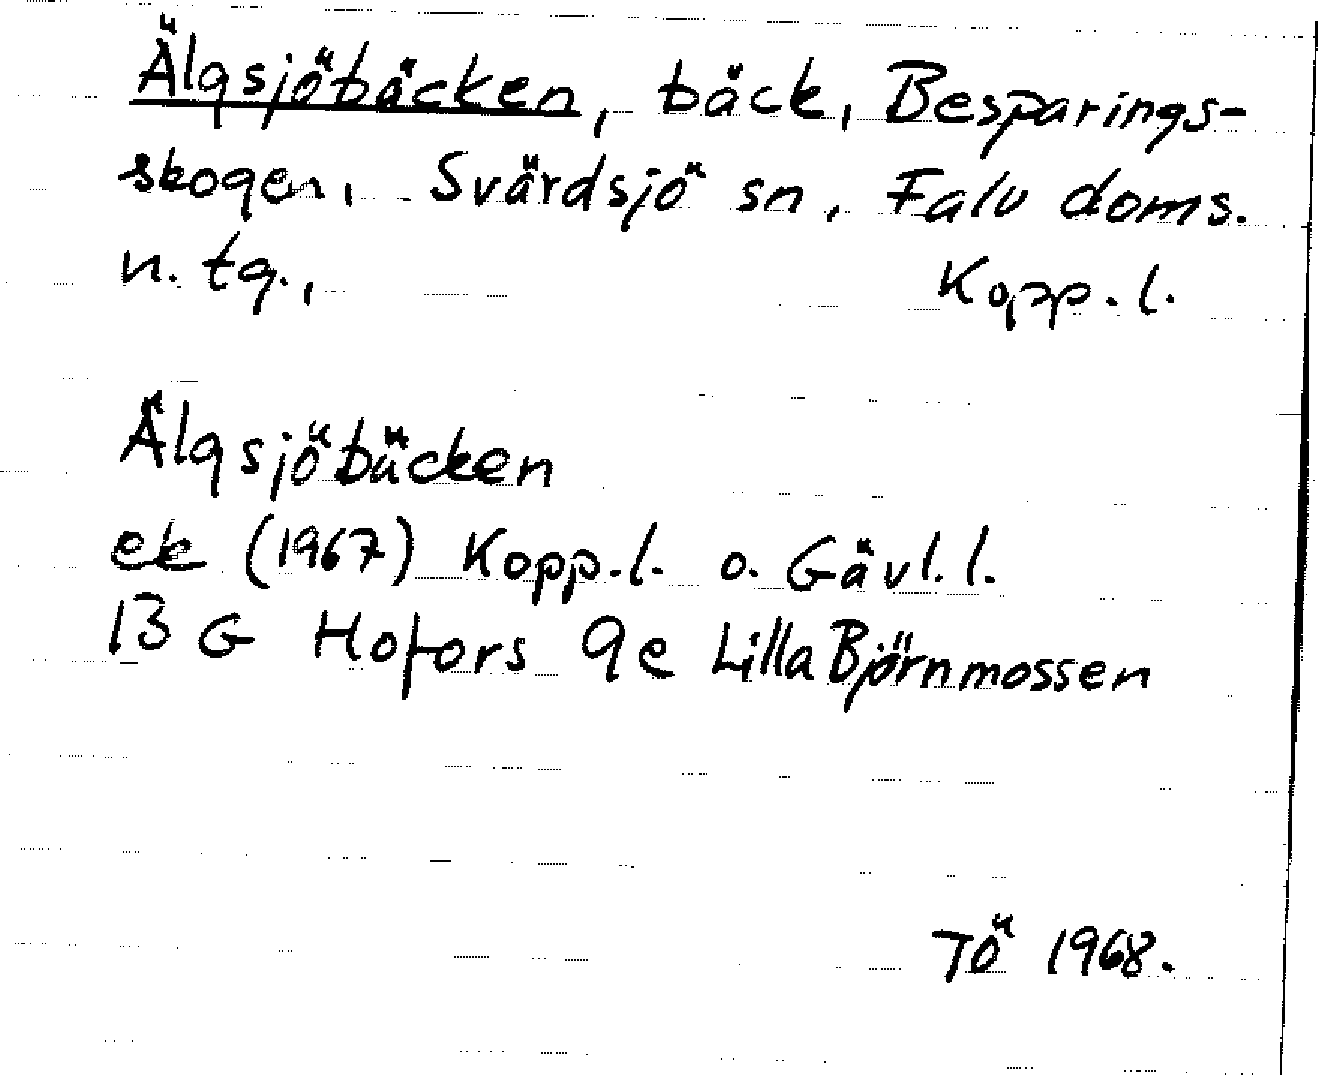 Älgsjöbäcken, bäck, Besparings-
skogen, Svärdsjö sn, Falu doms.
n. tg., Kopp. l.
Älgsjöbäcken
ek (1967) Kopp.l. o. Gävl. l.
13 G Hofors 9e Lilla Björnmossen
TÖ 1968.